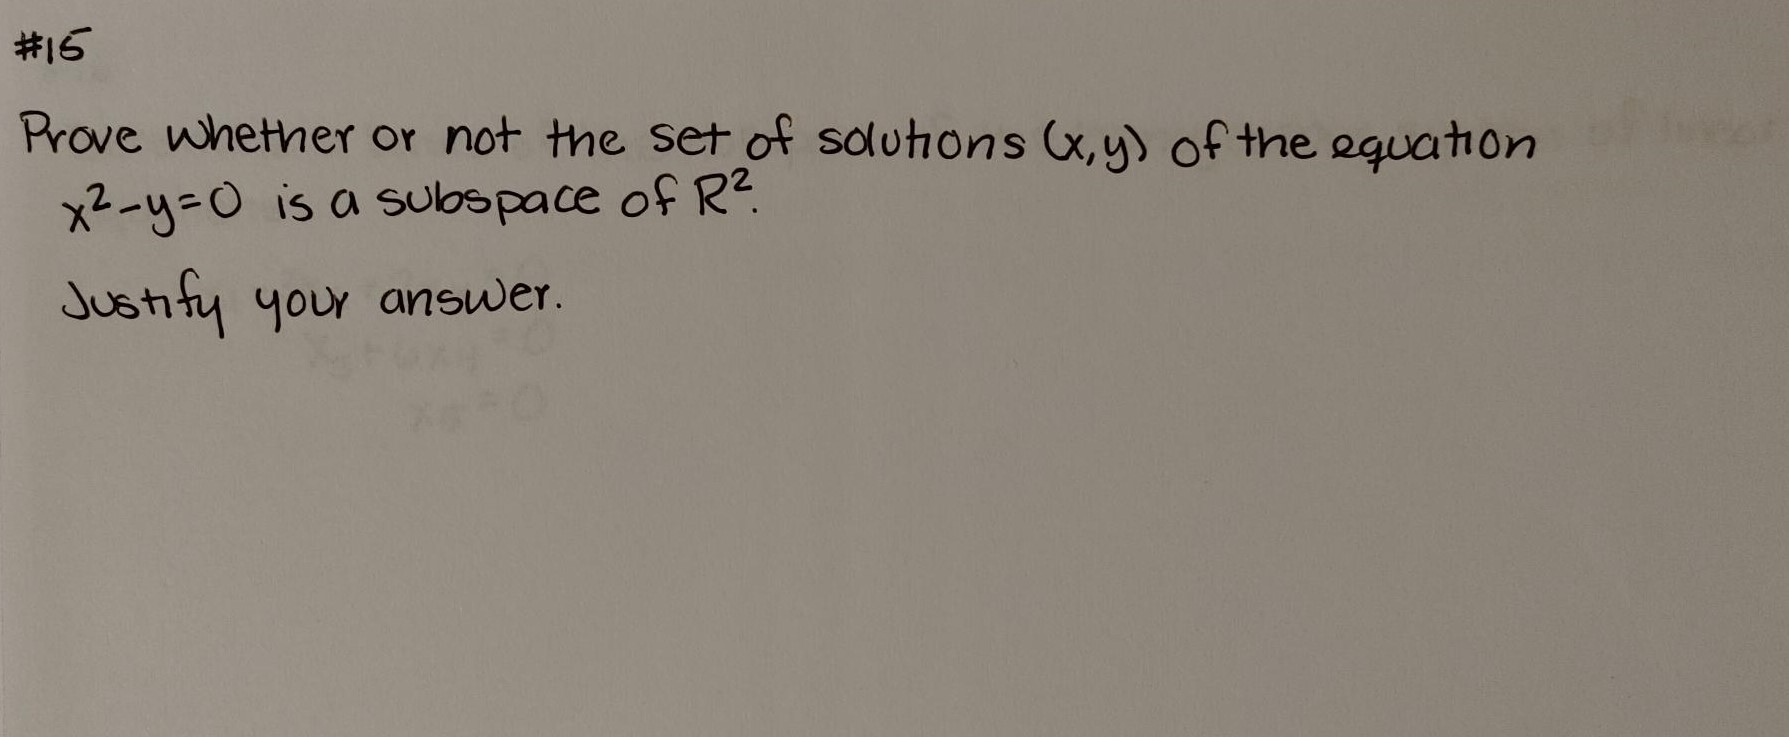 #15
Prove whether or not the set of solutions (x,y) of the equation
x²-y=0 is a subspace of R².
Justify your answer.